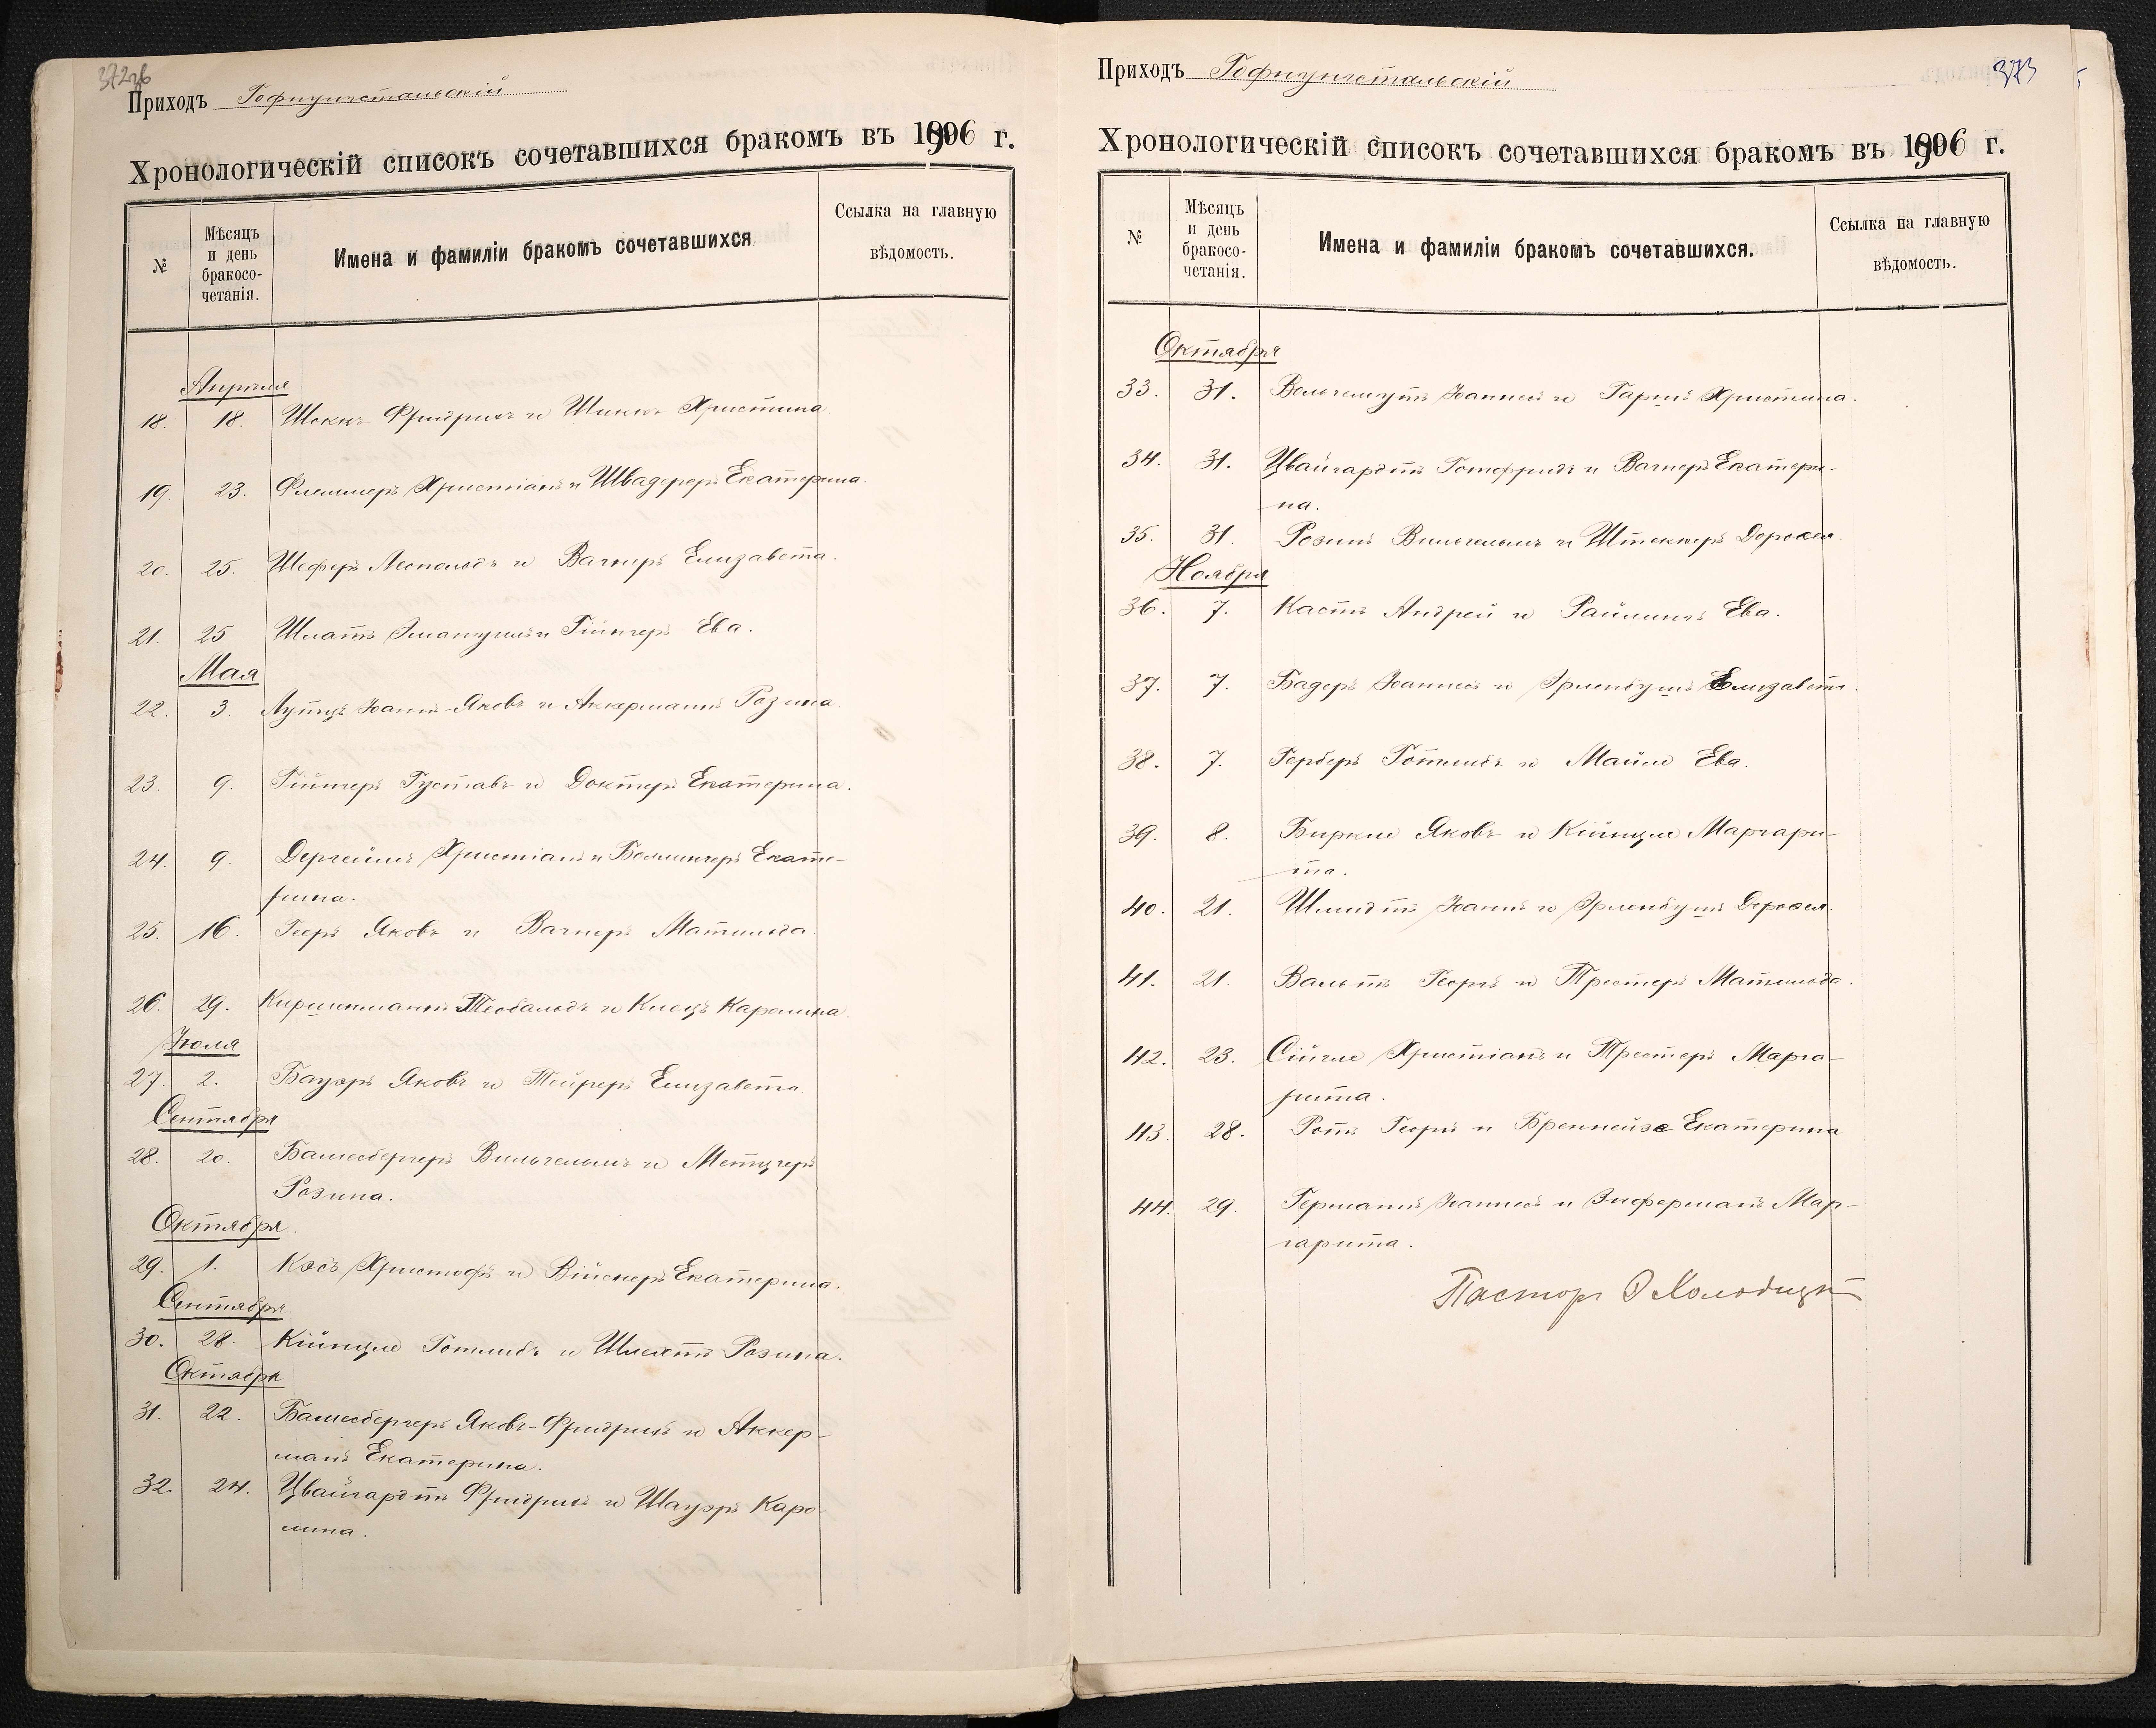 Приходъ Гофнунгстальскій
Хронологическій списокъ сочетавшихся бракомъ въ 1906 г.
№
Мѣсяцъ
и день
бракосо-
четанія.
Имена и фамиліи бракомъ сочетавшихся
Ссылка на главную
вѣдомость.
Апрѣля
18. 18. Фридрихъ и Христина.
19. 23. Флеммеръ Христіанъ и Швадереръ Екатерина.
20. 25. Шеферъ Леопольдъ и Вагнеръ Елизавета.
21. 25 Эмануилъ и Гіингеръ Ева.
Мая
22. 3. Лутцъ Іоаннъ-Яковъ и Аккерманъ Розина
23. 9. Гіингеръ Густавъ и Доктеръ Екатерина.
24. 9. Христіанъ и Боллингеръ Екате-
рина.
25. 16. Гееръ Яковъ и Вагнеръ Матильда
26. 29. Киршенманнъ Теобальдъ и Каролина.
Іюля
27. 2. Бауэръ Яковъ и Елизавета
Сентября
28. 20. Башесбергеръ Вильгельмъ и Метцгеръ
Розина.
Октября.
29. 1. Кэсъ Христофъ и Екатерина.
Сентября
30. 28. Кіинцле Готлибъ и Розина.
Октября
31. 22. Башесбергеръ Яковъ-Фридрихъ и Аккер-
манъ Екатерина.
32. 24. Цвайгардтъ Фридрихъ и Шауэръ Каро-
лина.
373
Приходъ Гофнунгстальскій
Хронологическій списокъ сочетавшихся бракомъ въ 1906 г.
№
Мѣсяцъ
и день
бракосо-
четанія.
Имена и фамиліи бракомъ сочетавшихся.
Ссылка на главную
вѣдомость.
Октября
33. 31. Вольгемутъ Іоаннесъ и Христина.
34. 31. Цвайгардтъ Готфридъ и Вагнеръ Екатери-
на.
35. 31. Розинъ Вильгельмъ и Штеклеръ Доротея.
Ноября
36. 7. Кастъ Андрей и Райлингъ Ева.
37. 7. Бадеръ Іоаннесъ и Эрленбушъ Елизавета.
38. 7. Герберъ Готлибъ и Майле Ева.
39. 8. Биркле Яковъ и Кіинцле Маргари-
та.
40. 21. Шмидтъ Іоаннъ и Эрленбушъ Доротея.
41. 21. Вальтъ Георгъ и Трестеръ Матильда.
42. 23. Сіигле Христіанъ и Трестеръ Марга-
рита.
43. 28. Ротъ Георгъ и Бреннейзе Екатерина
44. 29. Германнъ Іоаннесъ и Зиферманъ Мар-
гарита.
Пасторъ